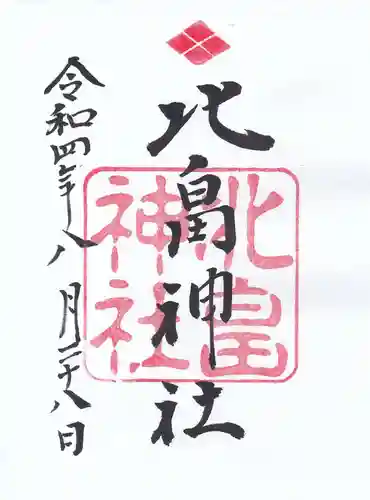 北畠神社
令和四年八月二十八日
北畠
神社